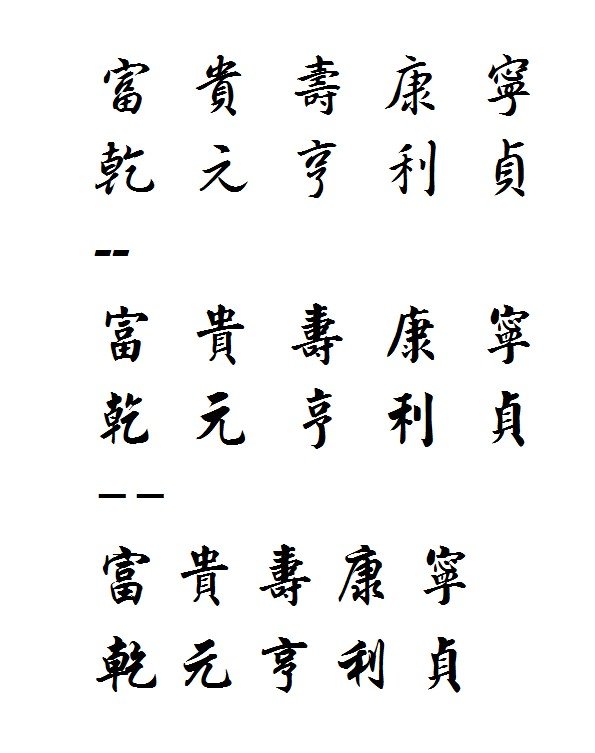 富 貴 壽 康 寧
乾 元 亨 利 貞
--
富 貴 壽 康 寧
乾 元 亨 利 貞
– –
富 貴 壽 康 寧
乾 元 亨 利 貞